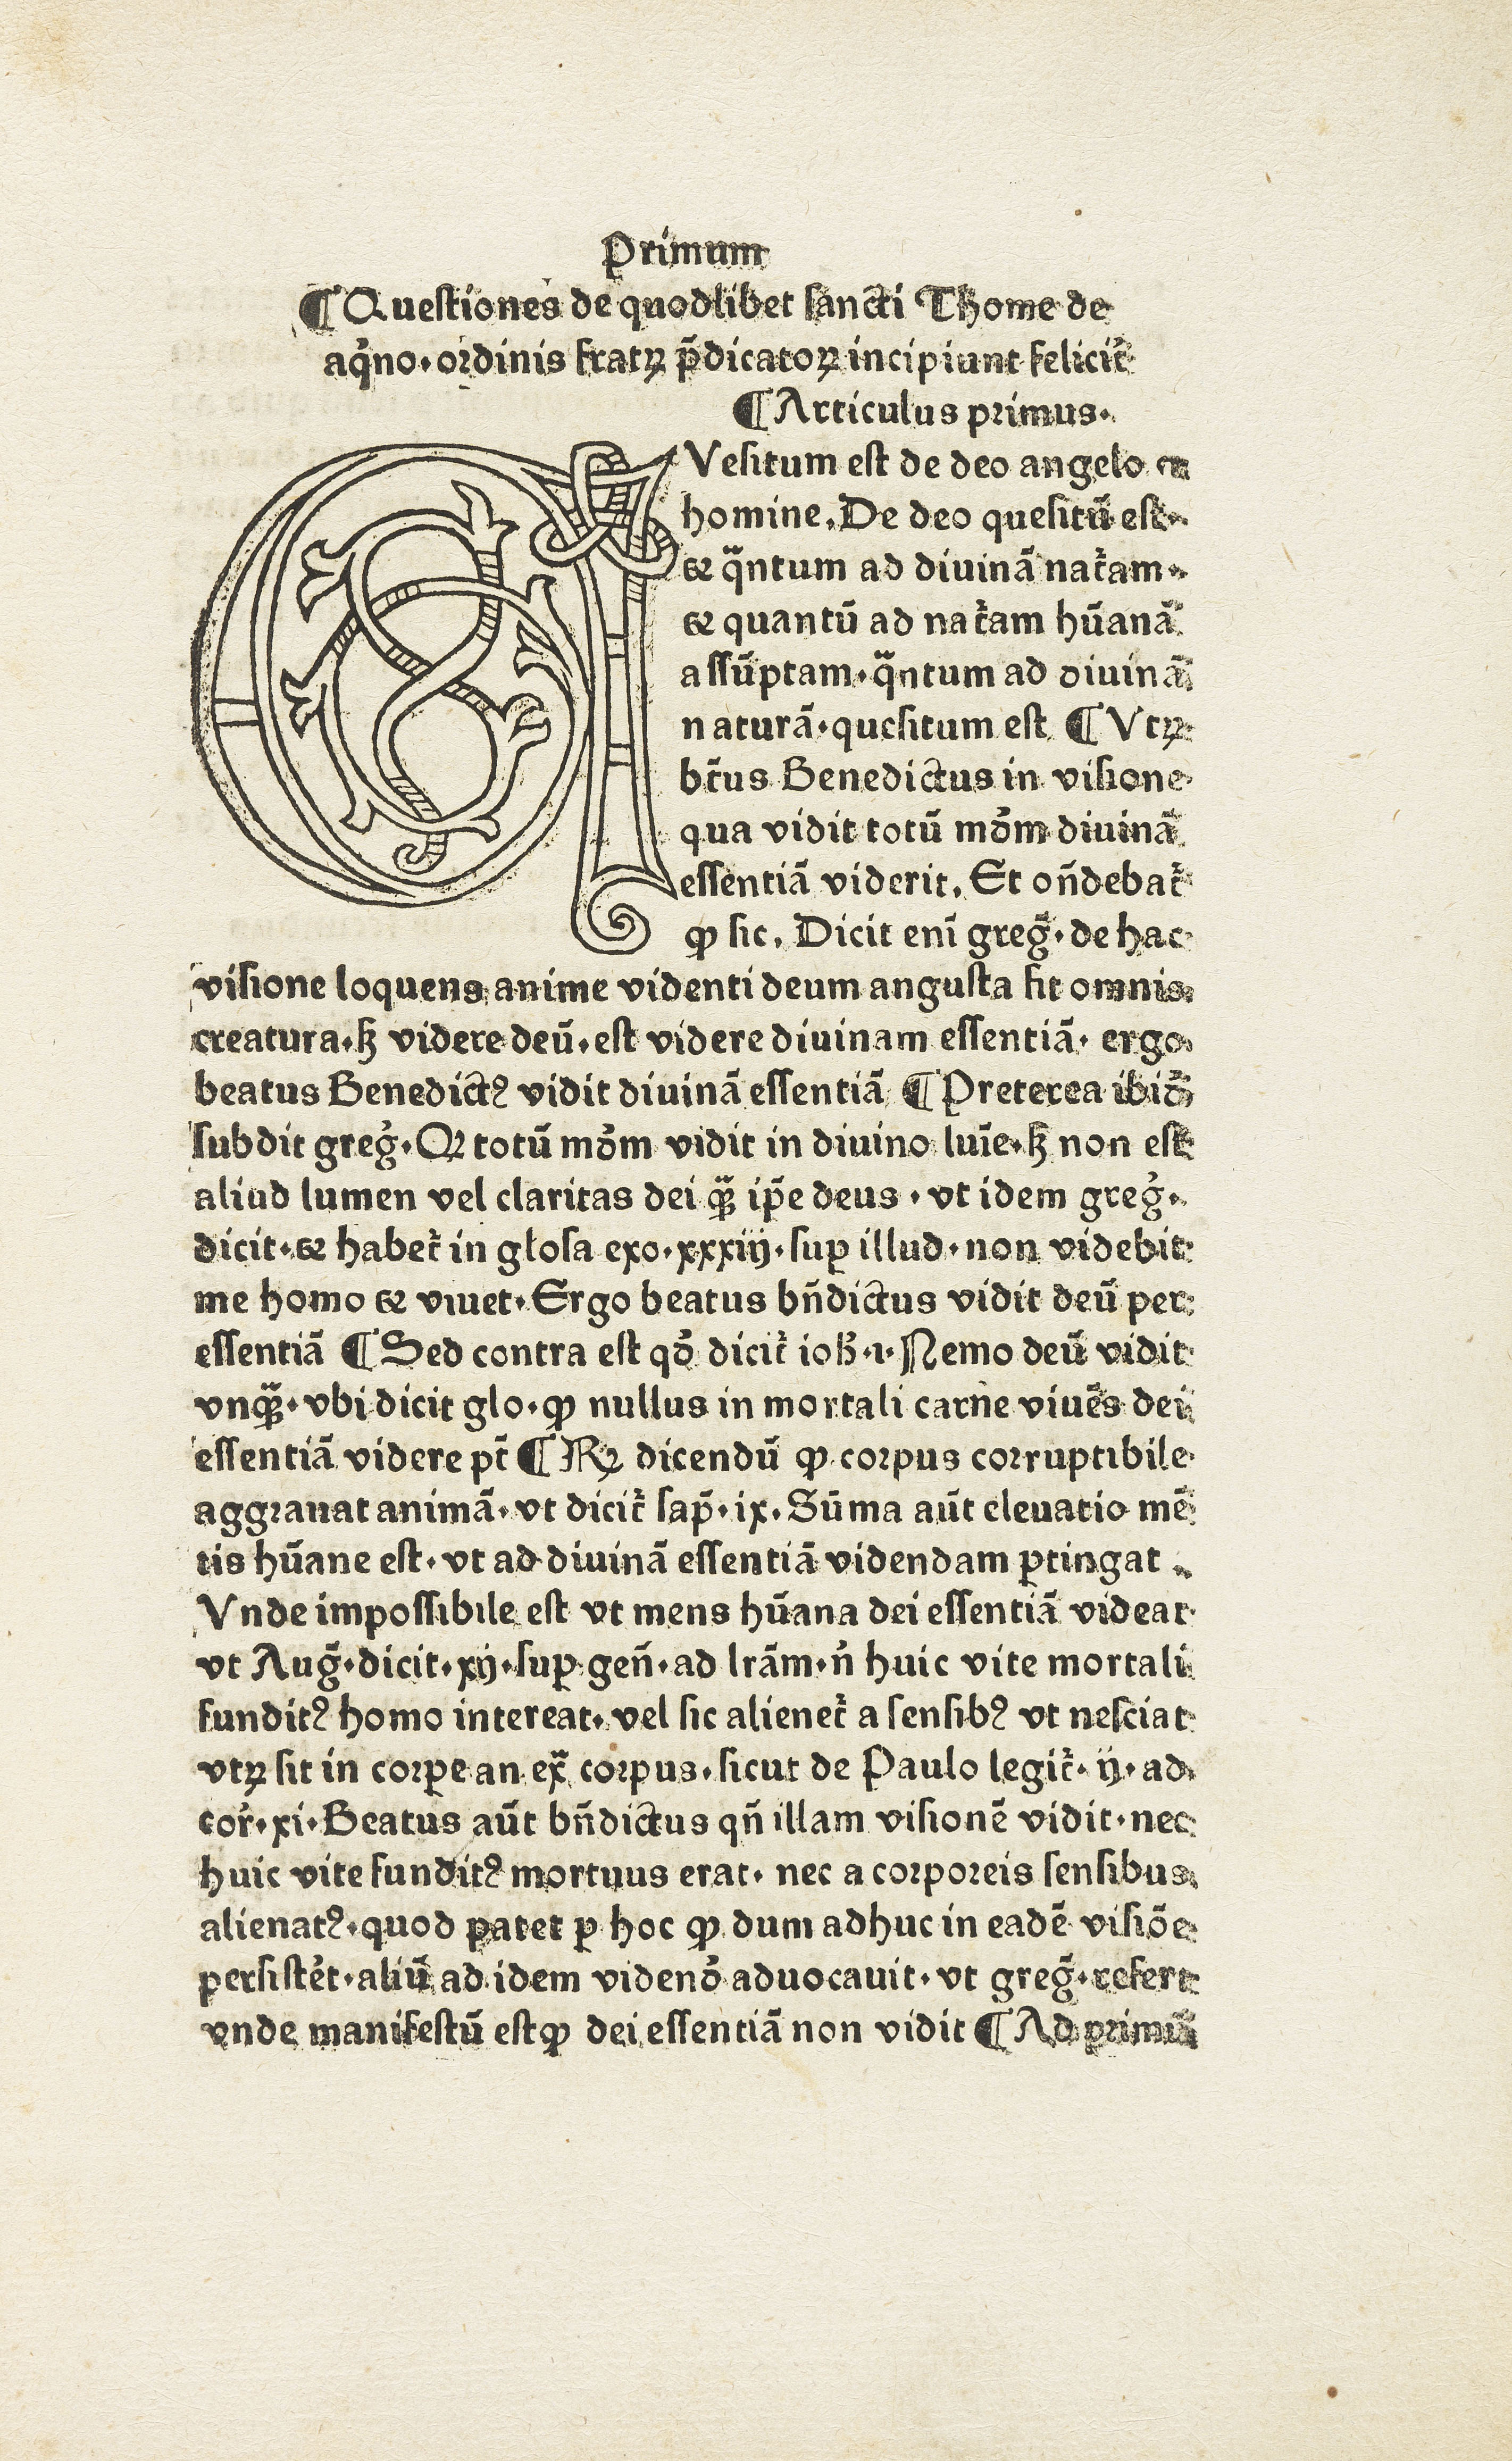 Primum
¶ Questiones de quodlibet sancti Thome de
aq̉no · ordinis fratꝝ p̄dicatoꝝ incipiunt felicit̉
¶ Articulus primus ·
QVesitum est de deo angelo ⁊
homine . De deo quesitū est ·
⁊ q̄ntum ad diuinā nat̉am ·
⁊ quantū ad nat̉am hūanā
assūptam · q̄ntum ad diuinā
naturā · quesitum est ¶ Vtꝝ
bt̄us Benedictus in visione
qua vidit totū mōm diuinā
essentiā viderit . Et on̄debat̉
ꝙ sic . Dicit enī greg̉ · de hac
visione loquens anime videnti deum angusta fit omnis
creatura · ꝫ videre deū · est videre diuinam essentiā · ergo
beatus Benedictꝰ vidit diuinā essentiā ¶ Preterea ibid̄
subdit greg̉ · Qꝛ totū mōm vidit in diuino luīe · ꝫ non est
aliud lumen vel claritas dei qꝫ̄ ip̄e deus · vt idem greg̉ ·
dicit · ⁊ habet̉ in glosa exo · xxxiij · suꝑ illud · non videbit
me homo ⁊ viuet · Ergo beatus bn̄dictus vidit deū per
essentiā ¶ Sed contra est qō dicit̉ ioh̄ · 1 · Nemo deū vidit
vnqꝫ̄ · vbi dicit glo · ꝙ nullus in mortali carne viuēs dei
essentiā videre pt̄ ¶ Rꝝ dicendū ꝙ corpus corruptibile
aggrauat animā · vt dicit̉ sap̄ · ix · Sūma aūt eleuatio mē
tis hūane est · vt ad diuinā essentiā videndam ꝑtingat ·
Vnde impossibile est vt mens hūana dei essentiā videat
vt Aug̉ · dicit · xij · suꝑ gen̄ · ad lrām · n̉ huic vite mortali
funditꝰ homo intereat · vel sic alienet̉ a sensibꝰ vt nesciat
vtꝝ sit in corꝑe an ex̄ corpus · sicut de Paulo legit̉ · ij · ad
cor̉ · xi · Beatus aūt bn̄dictus qn̄ illam visionē vidit · nec
huic vite funditꝰ mortuus erat · nec a corporeis sensibus
alienatꝰ · quod patet ꝑ hoc ꝙ dum adhuc in eadē visiōe
persistēt · aliū ad idem videnō aduocauit · vt greg̉ · refert
vnde manifestū est ꝙ dei essentiā non vidit ¶ Ad primū